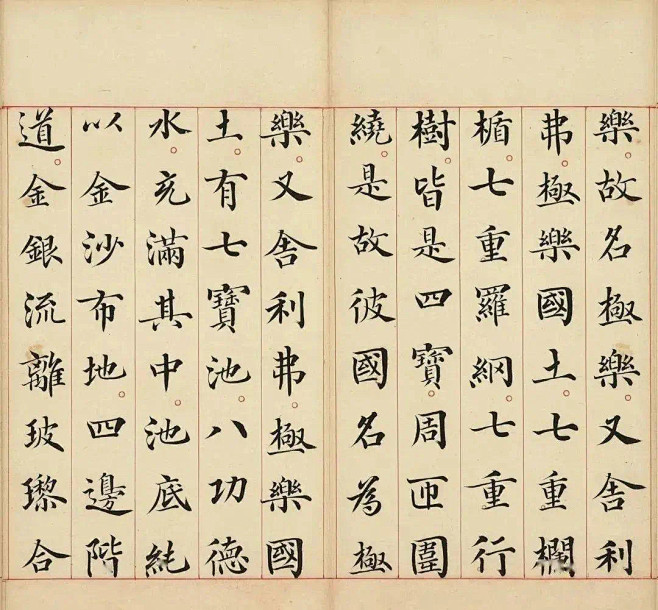 樂。故名極樂。又舍利
弗。極樂國土。七重欄
楯。七重羅網。七重行
樹。皆是四寶。周匝圍
繞。是故彼國名為極
樂。又舍利弗。極樂國
土。有七寶池。八功德
水。充滿其中。池底純
以金沙布地。四邊階
道。金銀流離玻瓈合